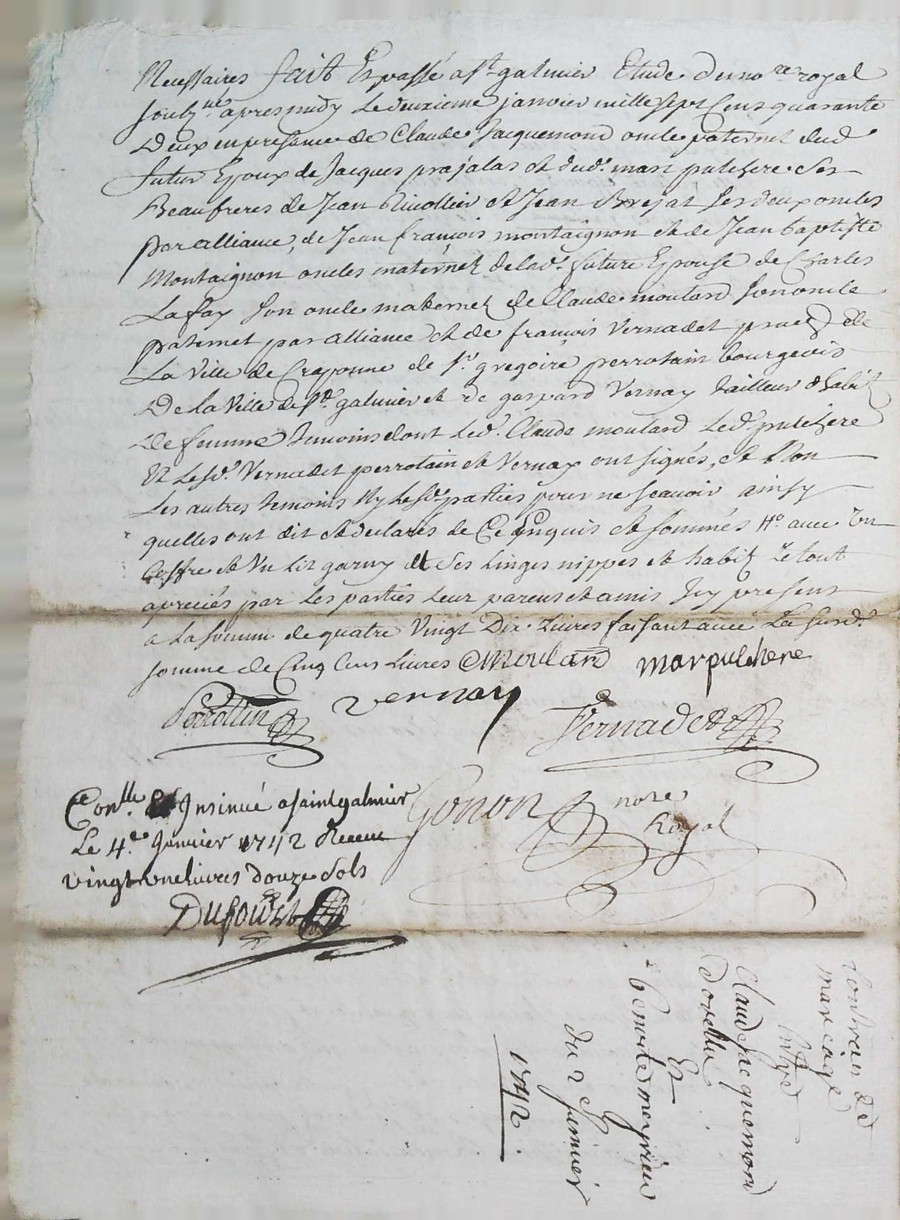 Necessaires fait Et passé a St galmier Etude du no.re royal
soubz.né apres midy le deuxieme janvier mille sept Cens quarante
Deux en presance de Claude Jacquemond oncle paternel dud
futur Epoux de Jacques prajalas et dud. marc pulchere ses
Beaufreres de Jean et Jean les deux oncles
par alliance, de Jean françois montaignon et de Jean baptiste
Montaignon oncles maternel de lad. future Epouse de Charles
Lafay son oncle maternel de Claude moulard son oncle
paternel par alliance et de françois Vernadet de
La Ville de Craponne de Sr. gregoire perrotain bourgeois
De la Ville de St. galmier et de gaspard Vernay tailleur d'habit
de femme temoins dont led. Claude moulard led. pulchere
Et les Sr. Vernadet perrotain et Vernay ont signés, et Non
Les autres temoins Ny les d. parties pour ne scavoir ainsy
quelles ont dit et declarés de Ce Enquis et sommés avec Un
Coffre et Un Lit garny et ses Linges nippes et habitz Le tout
apreciés par Les parties leur parens et amis Icy present
a La somme de quatre Vingt Dix Livres faisant avec La susd.
somme de Cinq Cens Livres CMoulard marpulchere
Perrottin Vernay Vernadet
Gonon no.re
Royal
Con.lle Et Insinué a saint galmier
Le 4.e Janvier 1742 Receu
vingt une livres douze sols
Dufour
Contrat de
mariage
Entre
Claude Jacquemond
dovelle
Et
benoite meyrieu
du 2 janvier
1742